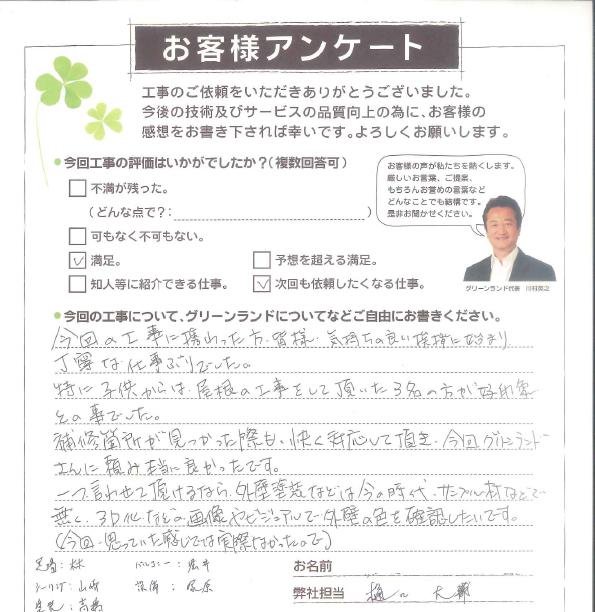 お客様アンケート
工事のご依頼をいただきありがとうございました。
今後の技術及びサービスの品質向上の為に、お客様の
感想をお書き下されば幸いです。よろしくお願いします。
今回工事の評価はいかがでしたか？（複数回答可）
不満が残った。
（どんな点で？：　）
可もなく不可もない。
満足。
予想を超える満足。
知人等に紹介できる仕事。
次回も依頼したくなる仕事。
お客様の声が私たちを熱くします。
厳しいお言葉、ご提案、
もちろんお誉めの言葉など
どんなことでも結構です。
是非お聞かせください。
グリーンランド代表　川村英之
今回の工事について、グリーンランドについてなどご自由にお書きください。
今回の工事に携わった方、皆様、気持ちの良い挨拶に始まり
丁寧な仕事ぶりでした。
特に子供からは、屋根の工事をして頂いた3名の方が好印象
との事でした。
補修箇所が見つかった際も、快く対応して頂き、今回グリーンランド
さんに頼み本当に良かったです。
一つ言わせて頂けるなら、外壁塗装などは今の時代、サンプル材などで
無く、3D化などの画像やビジュアルで外壁の色を確認したいです。
（今回、思っていた感じでは実際なかったので）
足場：林
シーリング：山崎
お名前
弊社担当　樋口